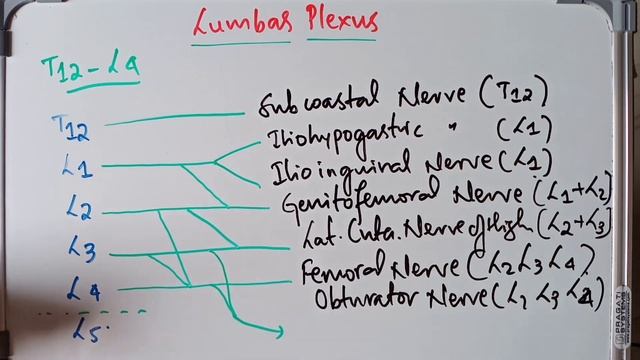 Lumbar Plexus
T12 - L4
T12
L1
L2
L3
L4
L5
Subcoastal Nerve (T12)
Iliohypogastric " (L1)
Ilioinguinal Nerve (L1)
Genitofemoral Nerve (L1+L2)
Lat. Cuta. Nerve of thigh (L2+L3)
Femoral Nerve (L2 L3 L4)
Obturator Nerve (L2 L3 L4)
PRAGATI
SYSTEMS